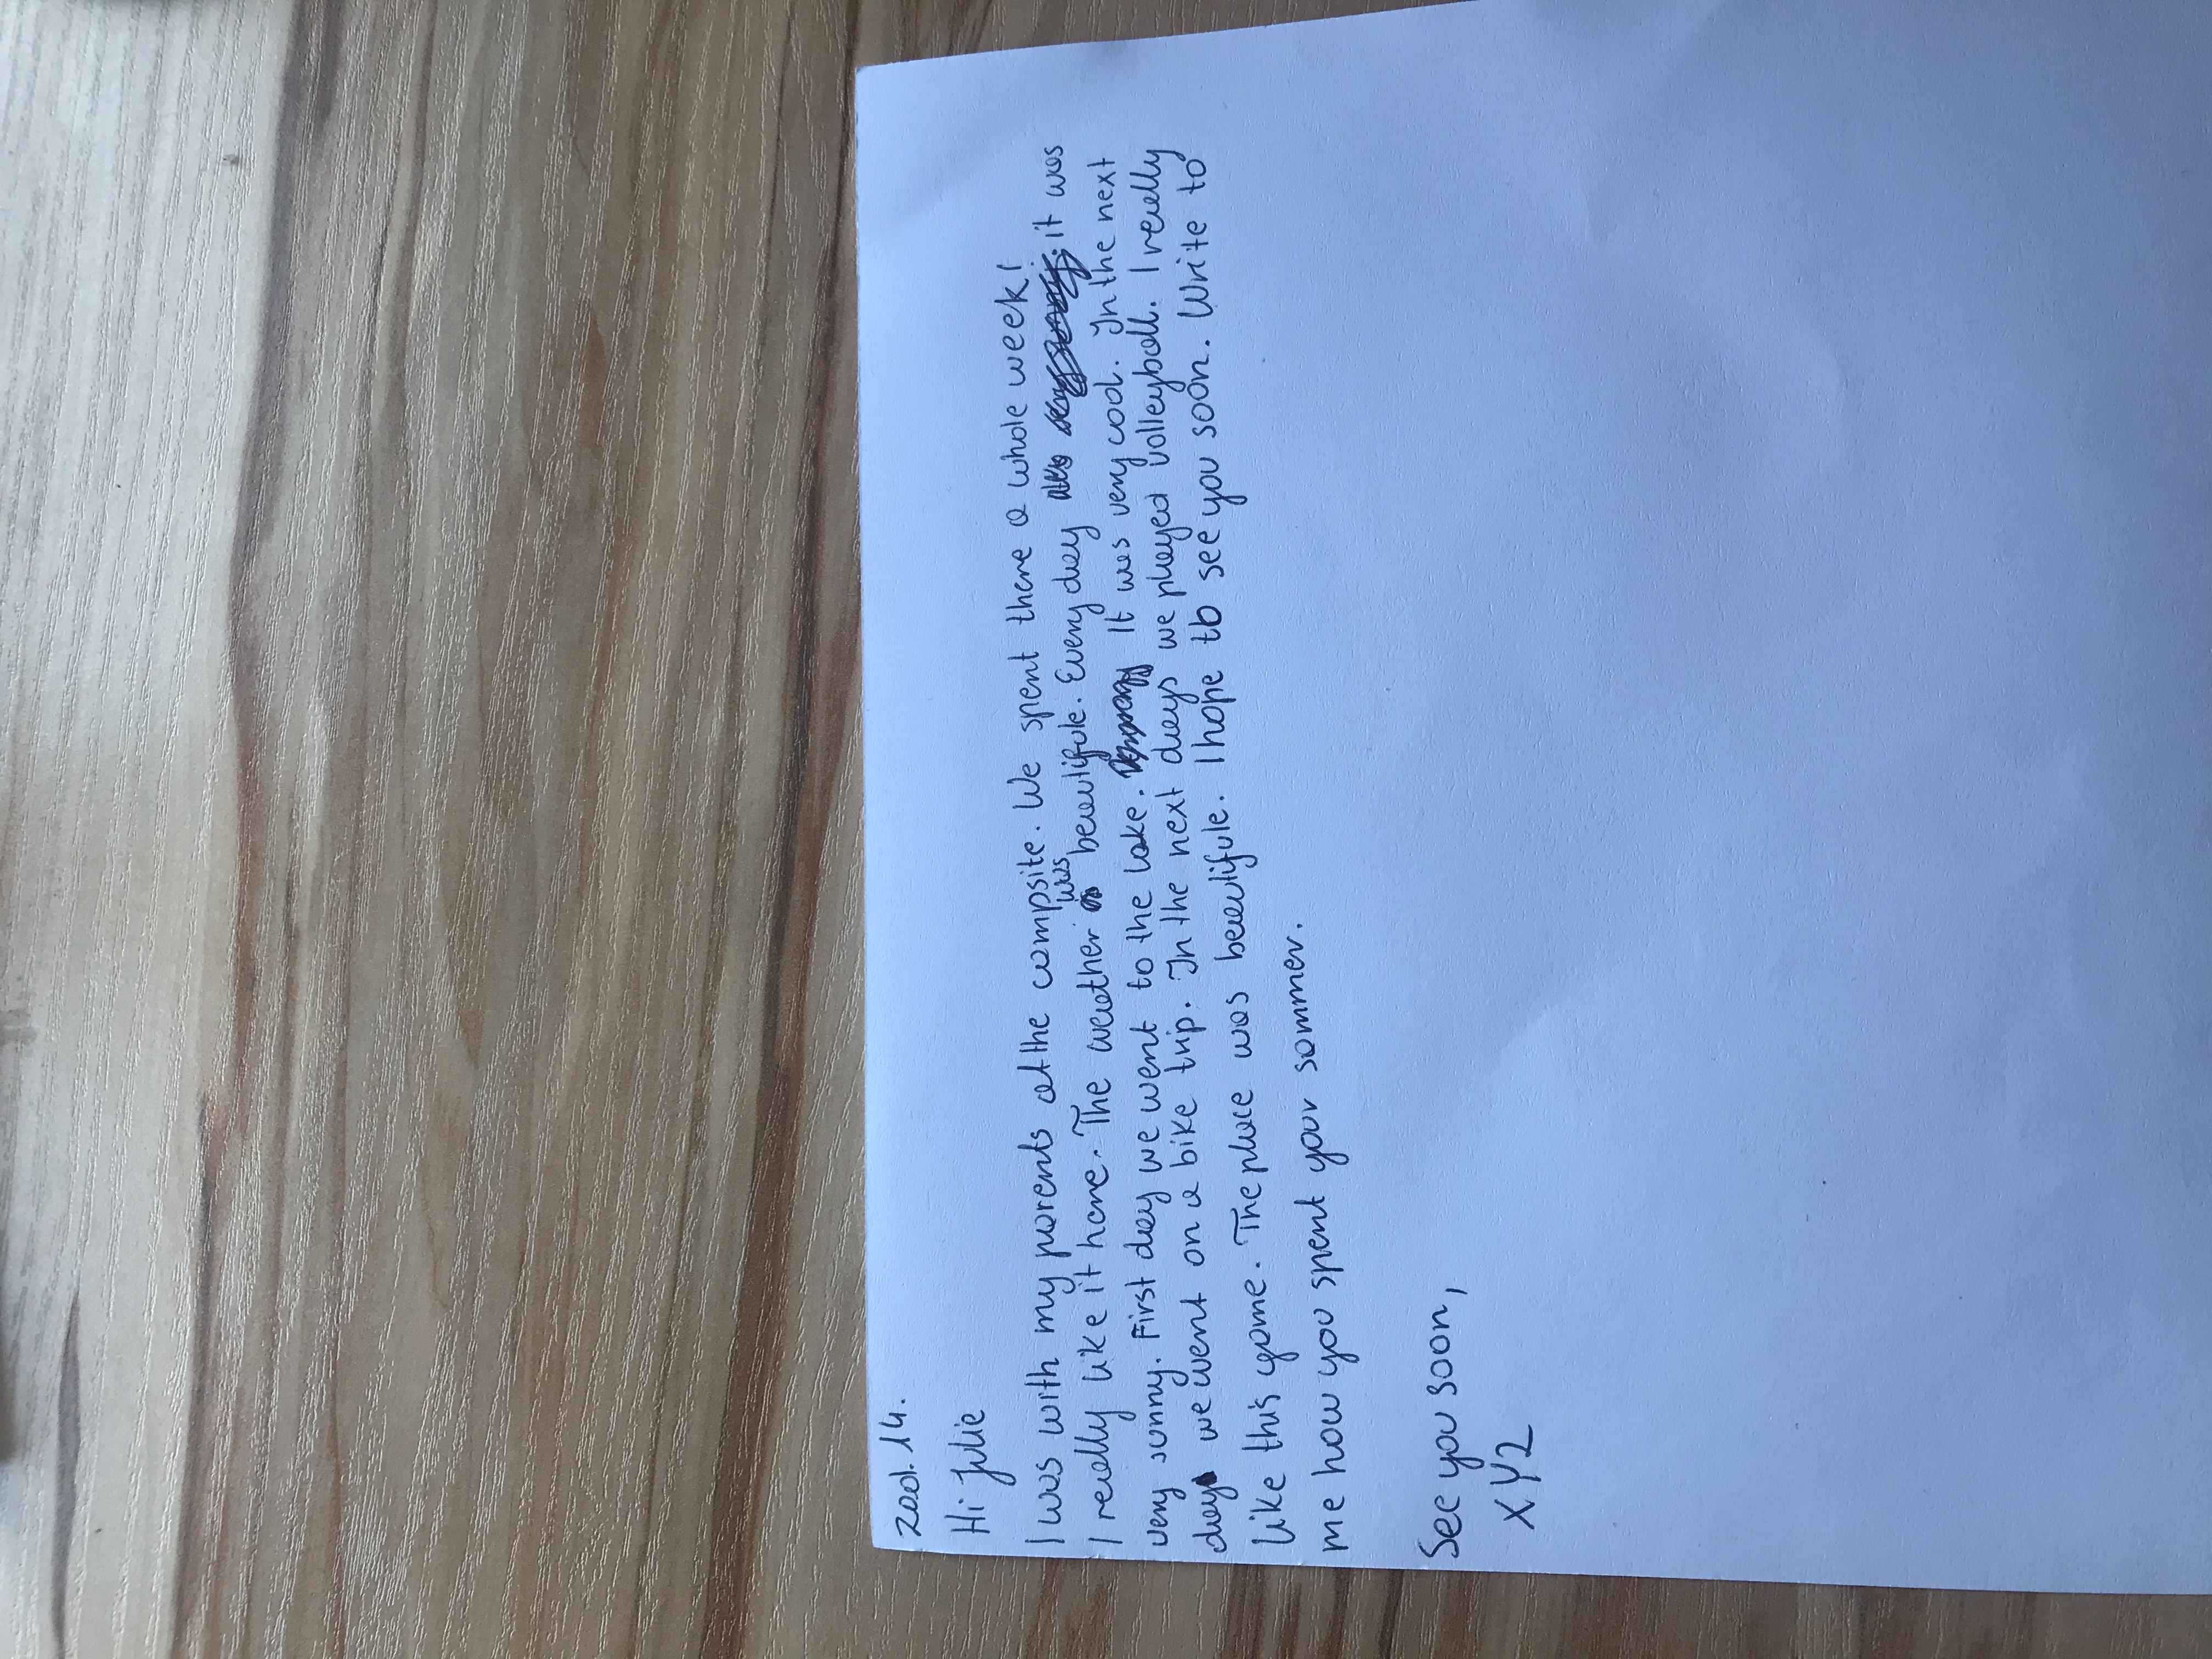 zad. 14.
Hi Julie
I was with my parents at the campsite. We spent there a whole week!
I really like it here. The weather was beautifule. Every day it was
very sunny. First day we went to the lake. It was very cool. In the next
day we went on a bike trip. In the next days we played volleyball. I really
like this game. The place was beautifule. I hope to see you soon. Write to
me how you spent your sommer.
See you soon,
XYZ